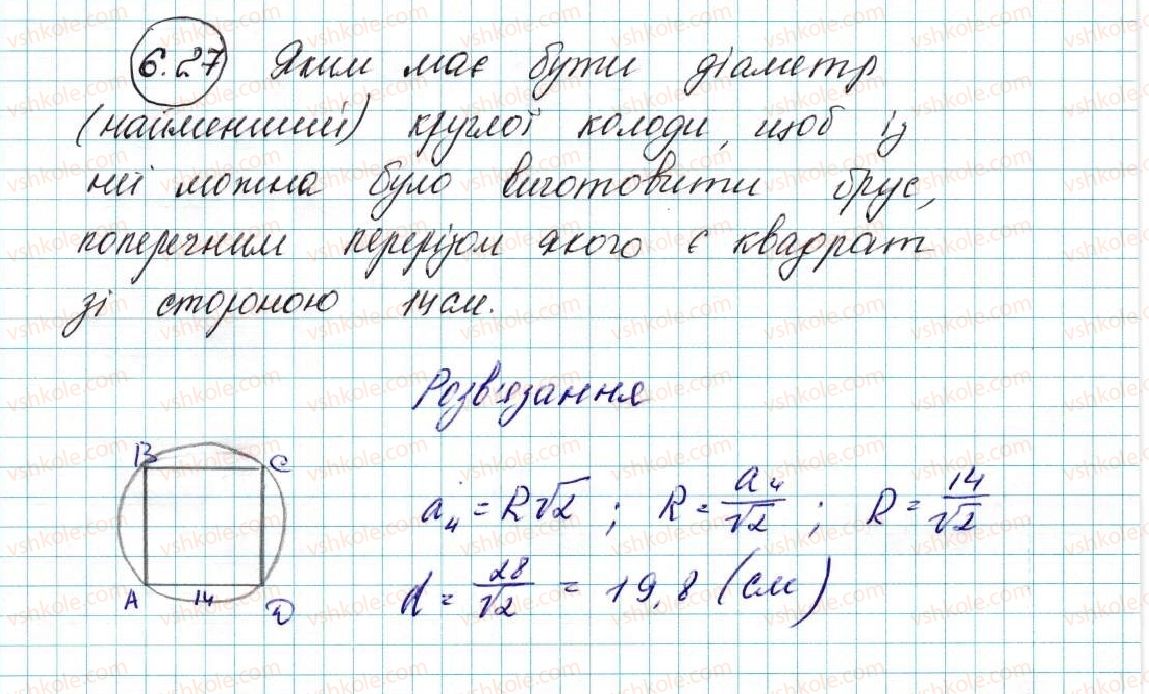 6.27 Яким має бути діаметр
(найменший) круглої колоди, щоб із
неї можна було виготовити брус,
поперечним перерізом якого є квадрат
зі стороною 14 см.
Розв'язання
B C
A 14 D
a₄ = R√2 ; R = a₄/√2 ; R = 14/√2
d = 28/√2 = 19,8 (см)